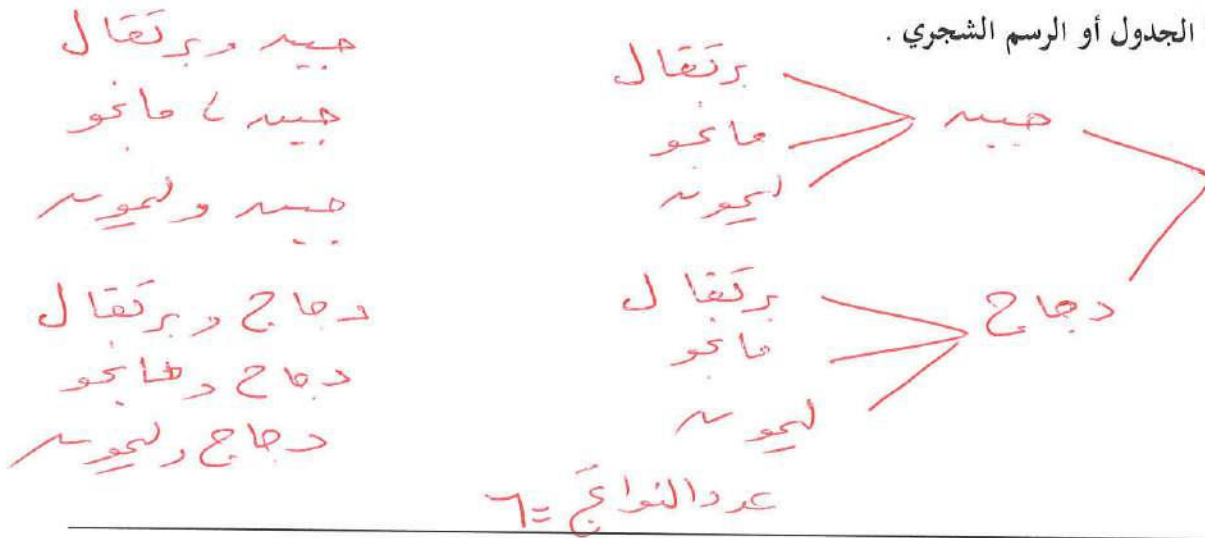 الجدول أو الرسم الشجري .
جبن
برتقال
مانجو
ليمون
دجاج
برتقال
مانجو
ليمون
جبن وبرتقال
جبن ، مانجو
جبن وليمون
دجاج وبرتقال
دجاج ومانجو
دجاج وليمون
عدد النواتج = ٦